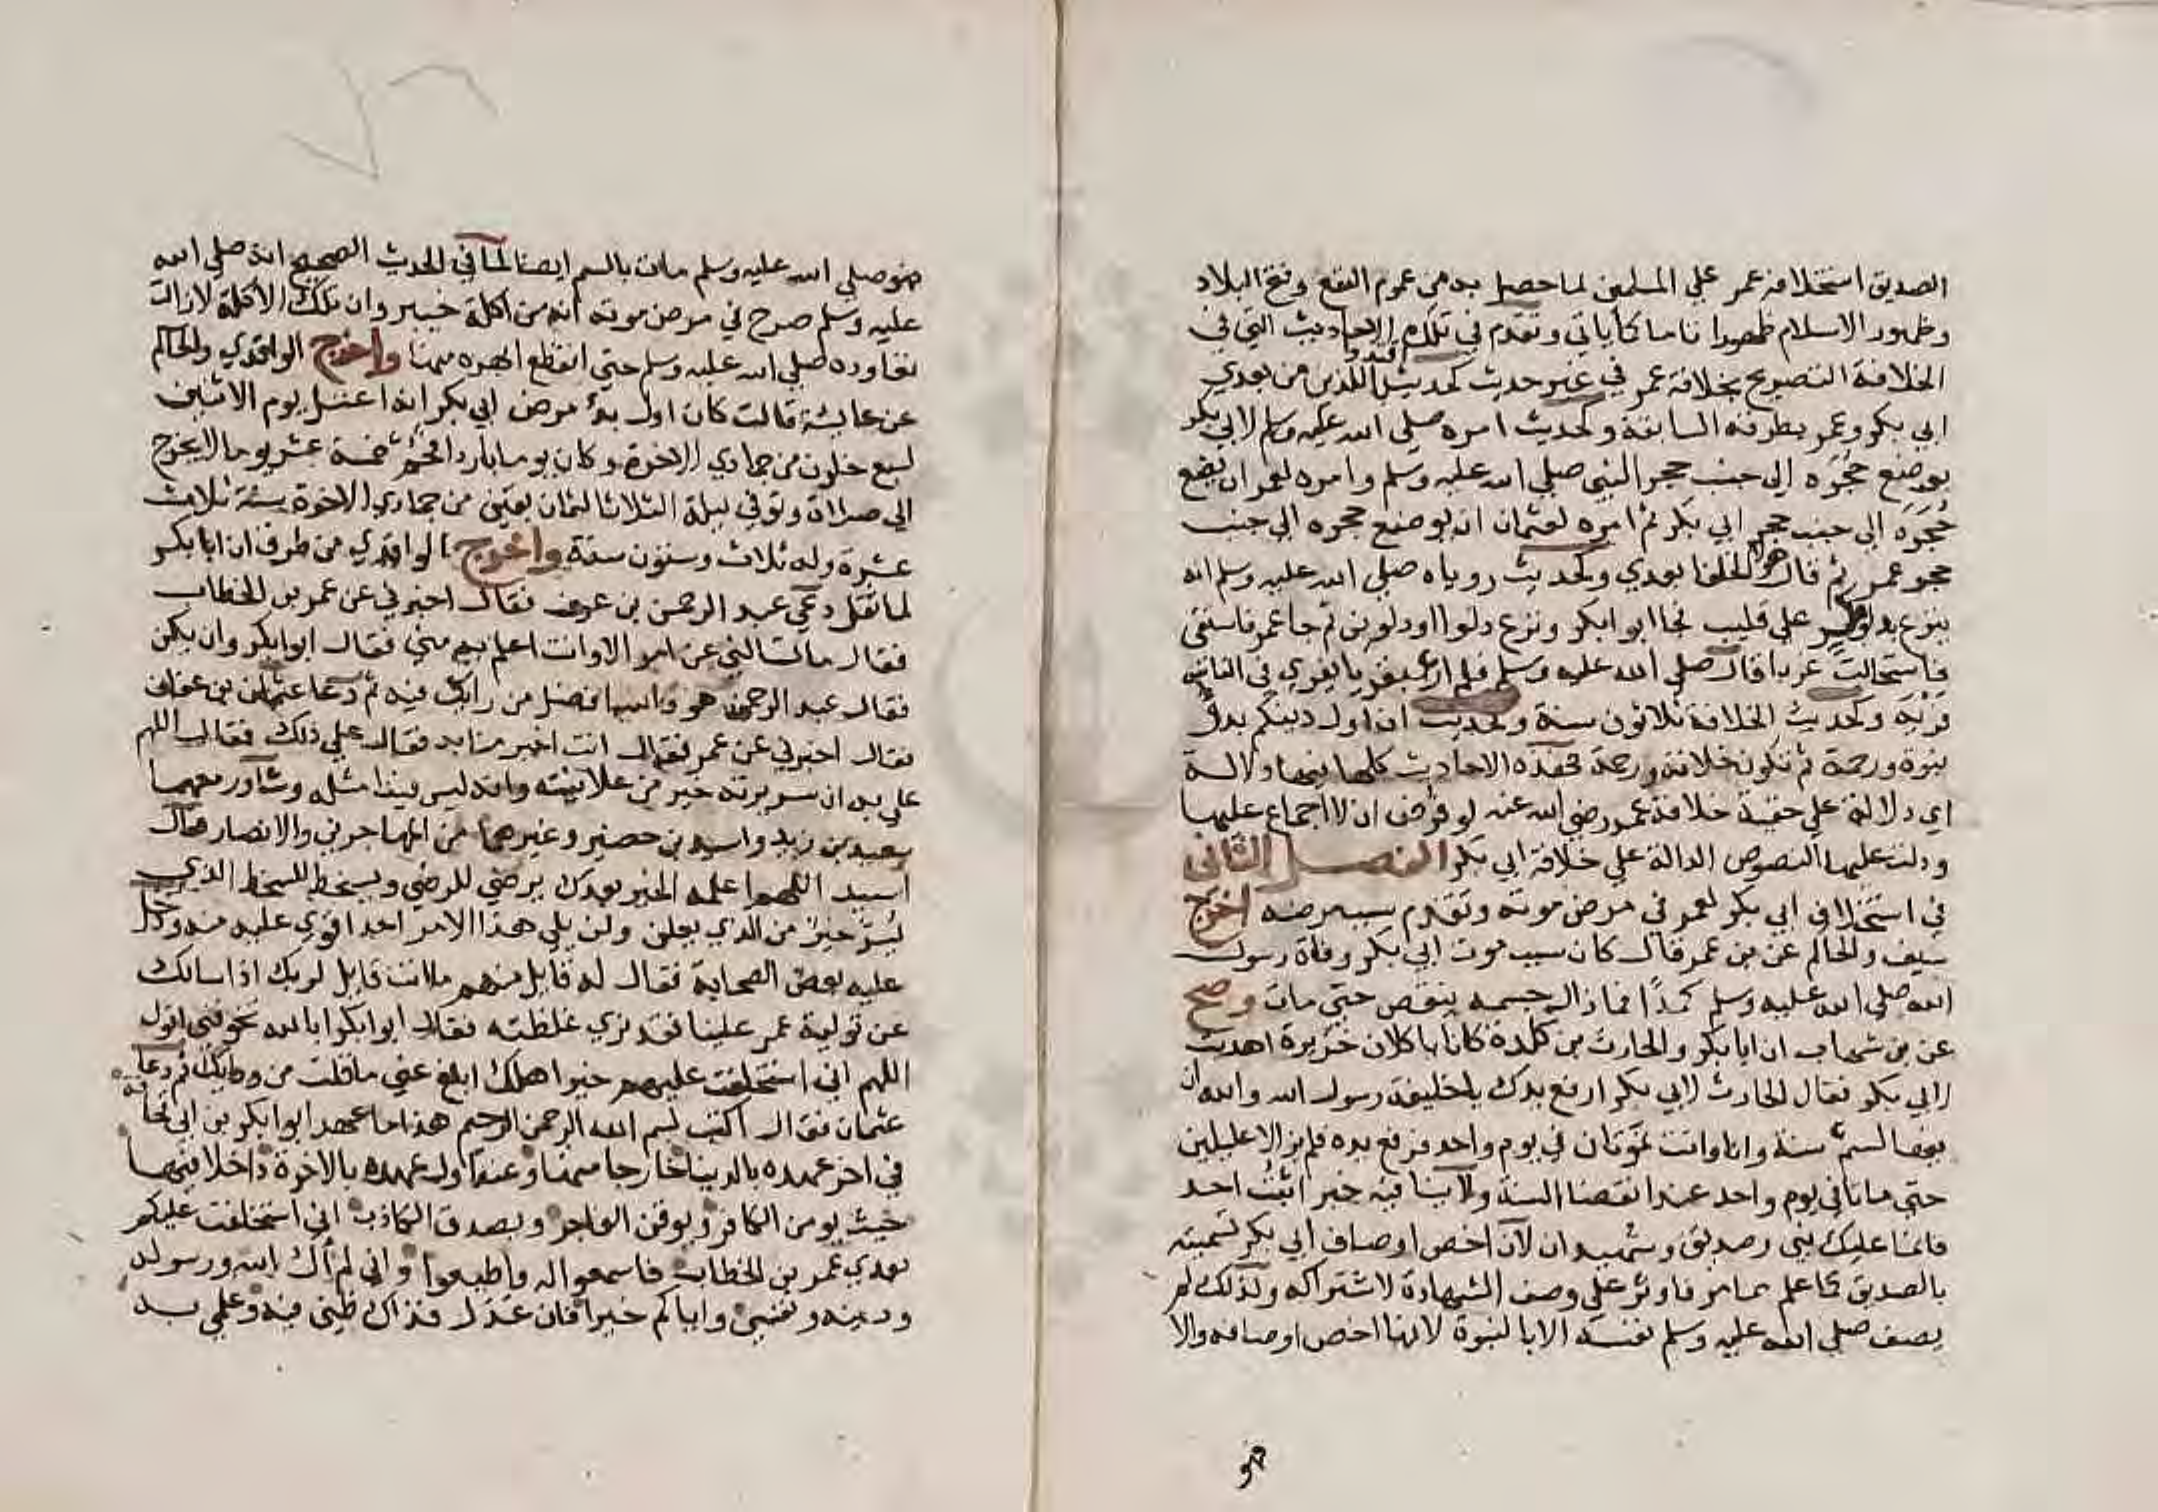 الصديق استخلافه عمر علي المسلمين لما حصل به من عموم النفع وفتح البلاد
وظهور الاسلام ظهورا تاما كما ياتي وتقدم في تلك الاحاديث التي في
الخلافة التصريح بخلافة عمر في غير حديث كحديث اقتدوا بالذين من بعدي
ابي بكر وعمر بطرقه السابقة وكحديث امره صلي الله عليه وسلم لابي بكر
بوضع حجره الي جنب حجر النبي صلي الله عليه وسلم وامره لعمر ان يضع
حجره الي جنب حجر ابي بكر ثم امره لعثمان ان يوضع حجره الي جنب
حجر عمر ثم قال هولاء الخلفا بعدي وكحديث روياه صلي الله عليه وسلم انه
ينزع بدلو علي قليب فجا ابوا بكر ونزع دلوا او دلوين ثم جا عمر فاستقي
فاستحالت غربا قال صلي الله عليه وسلم فلم ار عبقريا يفري في الناس
فريه وكحديث الخلافة ثلاثون سنة وكحديث ان اول دينكم بدأ
نبوة ورحمة ثم تكون خلافة ورحمة فهذه الاحاديث كلها فيها دلالة
اي دلالة علي حقية خلافة عمر رضي الله عنه لو فرض ان لا اجماع عليها
ودلت عليها النصوص الدالة علي خلافة ابي بكر الفصل الثاني
في استخلاف ابي بكر لعمر في مرض موته وتقدم سبب مرضه اخرج
سيف والحاكم عن بن عمر قال كان سبب موت ابي بكر وفاة رسول
الله صلي الله عليه وسلم كمدًا فما زال جسمه ينقص حتي مات وصح
عن بن شهاب ان ابا بكر والحارث بن كلدة كانا ياكلان خزيرة اهديت
لابي بكر فقال الحارث لابي بكر ارفع يدك يا خليفة رسول الله والله ان
فيها لسم سنة وانا وانت نموتان في يوم واحد فرفع يده فلم يزالا عليلين
حتي ماتا في يوم واحد عند انقضا السنة ولا ينافيه خبر اثبت احد
فانما عليك نبي وصديق وشهيدان لان اخص اوصاف ابي بكر تسميته
بالصديق كما علم مما مر فاوثر علي وصف الشهادة لاشتراكه ولذلك لم
يصف صلي الله عليه وسلم نفسه الا بالنبوة لانها اخص اوصافه والا
فهو
فهو صلي الله عليه وسلم مات بالسم ايضا لما في الحديث الصحيح انه صلي الله
عليه وسلم صرح في مرض موته انه من اكلة خيبر وان تلك الاكلة لازالت
تعاوده صلي الله عليه وسلم حتي انقطع ابهره منها واخرج الواقدي والحاكم
عن عايشة قالت كان اول بدء مرض ابي بكر انه اغتسل يوم الاثنين
لسبع خلون من جمادي الاخرة وكان يوما باردا فحم خمسة عشر يوما لا يخرج
الي صلاة وتوفي ليلة الثلاثا لثمان بقين من جمادي الاخرة سنة ثلاث
عشرة وله ثلاث وستون سنة واخرج الواقدي من طرق ان ابا بكر
لما ثقل دعي عبد الرحمن بن عوف فقال اخبرني عن عمر بن الخطاب
فقال ما تسالني عن امر الا وانت اعلم به مني فقال ابوا بكر وان يكن
فقال عبد الرحمن هو والله افضل من رايك فيه ثم دعا عثمان بن عفان
فقال اخبرني عن عمر فقال انت اخبرنا به فقال علي ذلك فقال اللهم
علمي به ان سريرته خير من علانيته وانه ليس فينا مثله وشاور معهما
سعيد بن زيد واسيد بن حضير وغيرهما من المهاجرين والانصار فقال
اسيد اللهم اعلمه الخير بعدك يرضي للرضي ويسخط للسخط الذي
يسر خير من الذي يعلن ولن يلي هذا الامر احد اقوي عليه منه ودخل
عليه بعض الصحابة فقال له قايل منهم ما انت قايل لربك اذا سالك
عن تولية عمر علينا فقد تري غلظته فقال ابوا بكر ابالله تخوفني اقول
اللهم اني استخلفت عليهم خير اهلك ابلغ عني ما قلت من ورايك ثم دعا
عثمان فقال اكتب بسم الله الرحمن الرحيم هذا ما عهد ابوا بكر بن ابي قحافة
في اخر عهده بالدينا خارجا منها وعند اول عهده بالاخرة داخلا فيها
حيث يومن الكافر ويوقن الفاجر ويصدق الكاذب اني استخلفت عليكم
بعدي عمر بن الخطاب فاسمعوا له واطيعوا واني لم أك الله ورسوله
ودينه ونفسي واياكم خيرا فان عدل فذاك ظني فيه وعلمي به